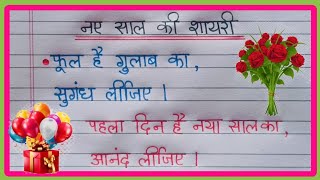 नए साल की शायरी
• फूल है गुलाब का,
सुगंध लीजिए ।
पहला दिन है नया साल का,
आनंद लीजिए ।